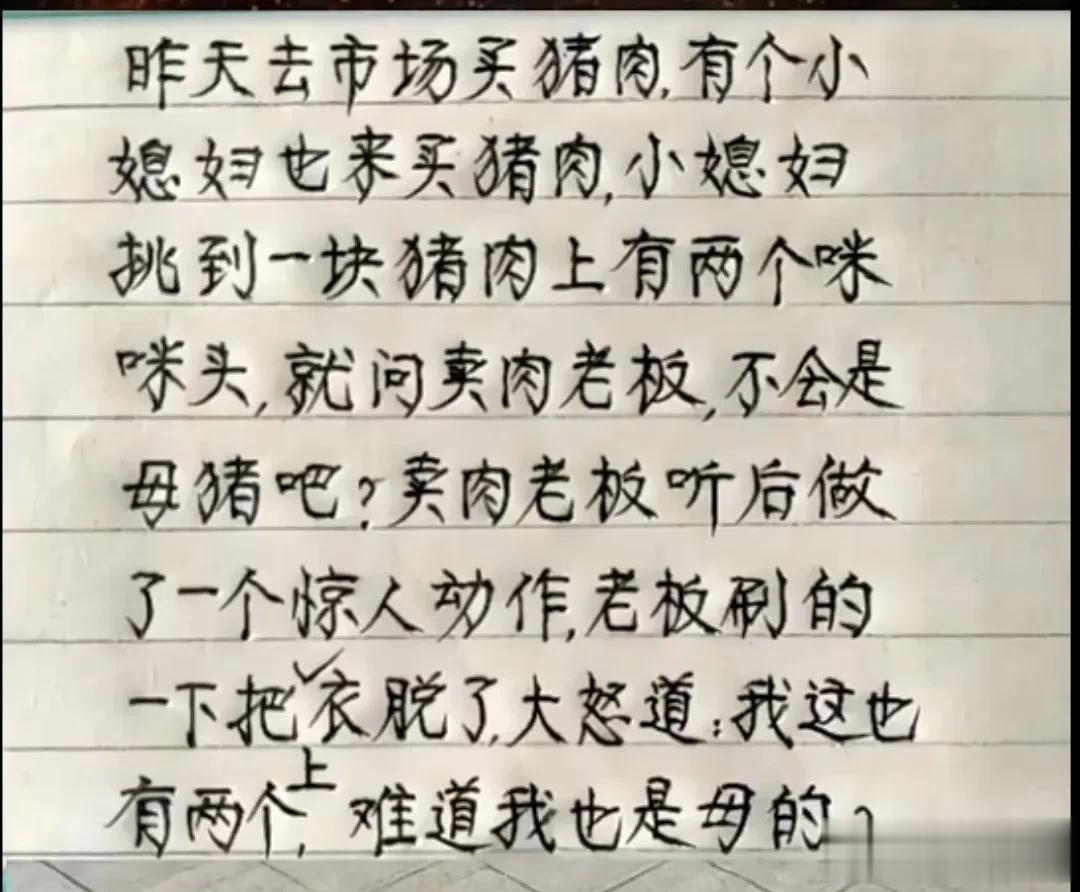 昨天去市场买猪肉,有个小
媳妇也来买猪肉,小媳妇
挑到一块猪肉上有两个咪
咪头,就问卖肉老板,不会是
母猪吧?卖肉老板听后做
了一个惊人动作,老板刷的
一下把上衣脱了,大怒道:我这也
有两个,难道我也是母的?